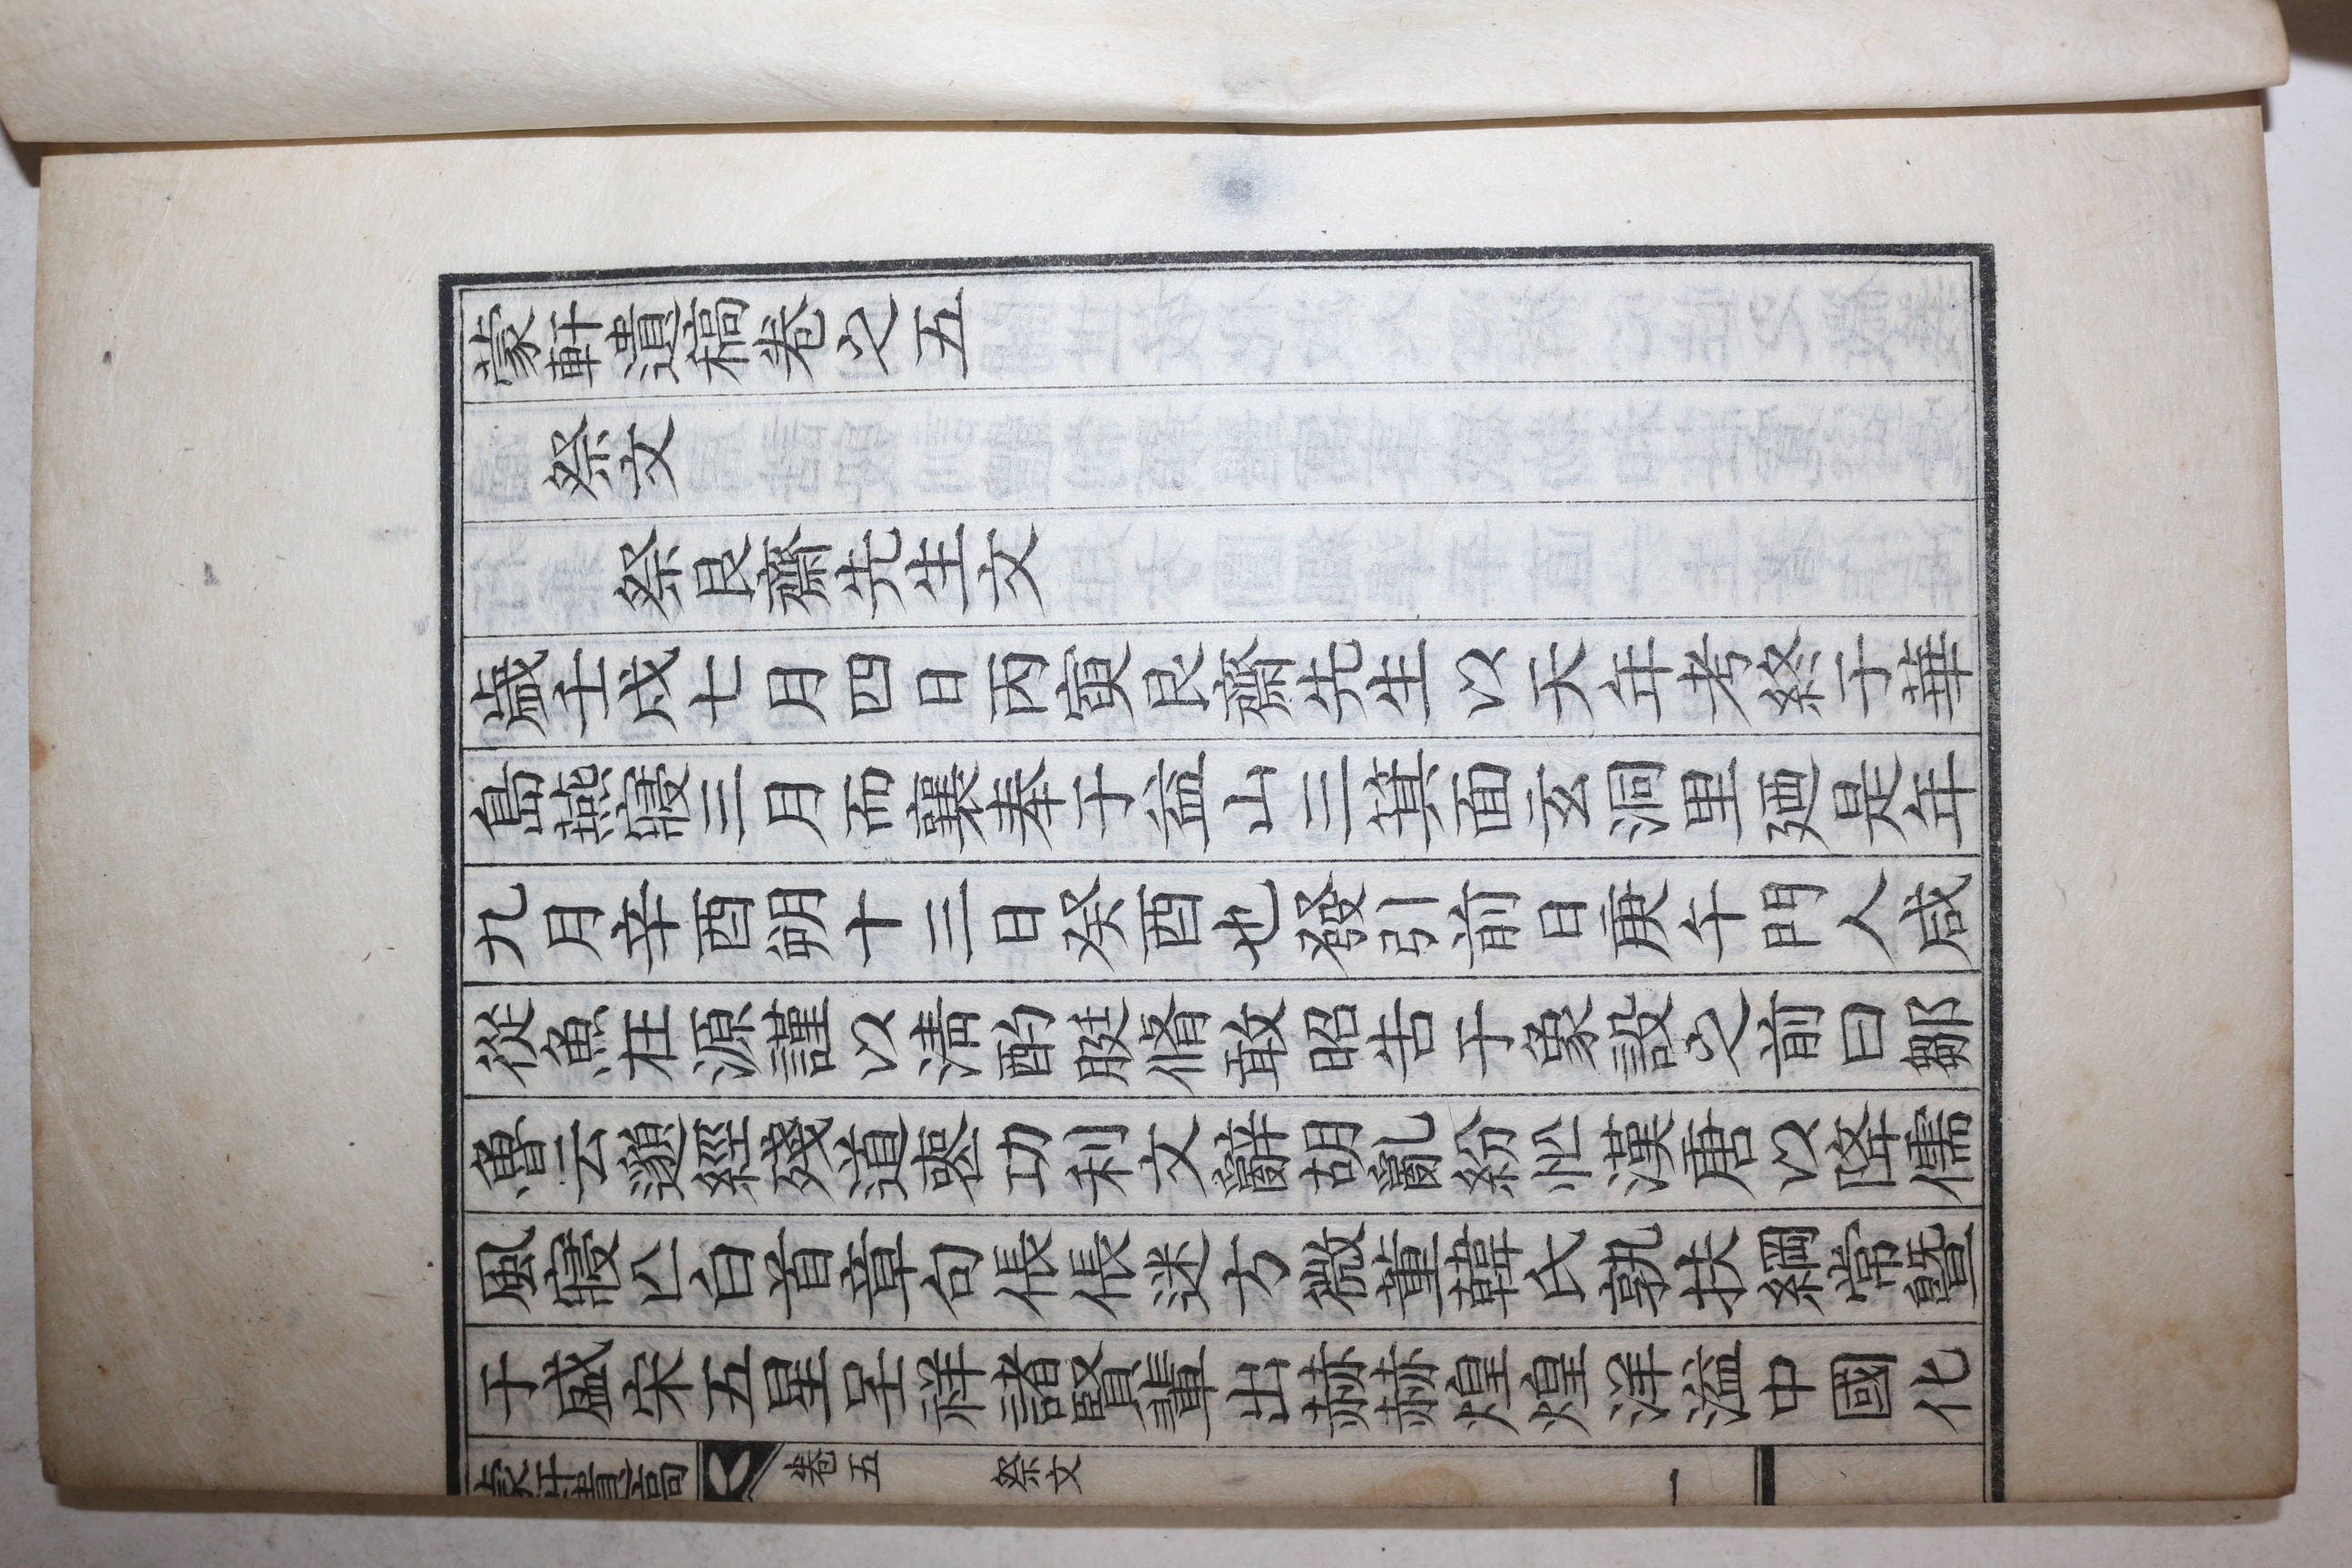 蒙軒遺稿卷之五
祭文
祭艮齋先生文
歲壬戌七月四日丙寅艮齋先生以天年考終于華
島燕寢三月而襄奉于益山三箕面玄洞里迺是年
九月辛酉朔十三日癸酉也發引前日庚午門人咸
從魚在源謹以淸酌脡脩敢昭告于象設之前曰鄒
魯云邈經殘道喪功利文辭胡亂紛忙漢唐以降儒
風寢亾白首章句倀倀迷方微董韓氏孰扶綱常曁
于盛宋五星呈祥諸賢輩出赫赫煌煌洋溢中國化
蒙軒遺稿 卷五 祭文 一